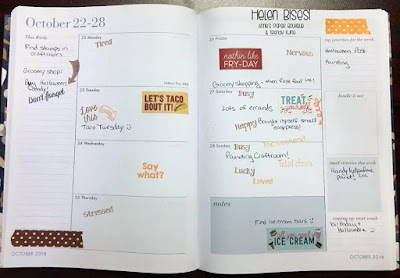 October 22-28
This Week
Find stamps in
craftroom
Grocery shop!
Buy Halloween
Candy!
Don't forget
22 Monday
Tired
23 Tuesday
Love
this
Taco Tuesday
LET'S TACO
BOUT IT!
24 Wednesday
Say
what?
25 Thursday
Stressed
OCTOBER 2018
Helen Bises!
26 Friday
nothin like
FRY-DAY
Nervous
Grocery shopping - then fast food
27 Saturday
Busy
Lots of errands
TREAT
Happy
Bought myself small
28 Sunday
Busy
Painting Craftroom!
Lucky
Loved
notes
Find ice cream bars
ICE CREAM
my priorities for the week
Halloween Post
Painting
doodle it out
small victories this week
coming up next week
birthday +
Halloween
OCTOBER 2018